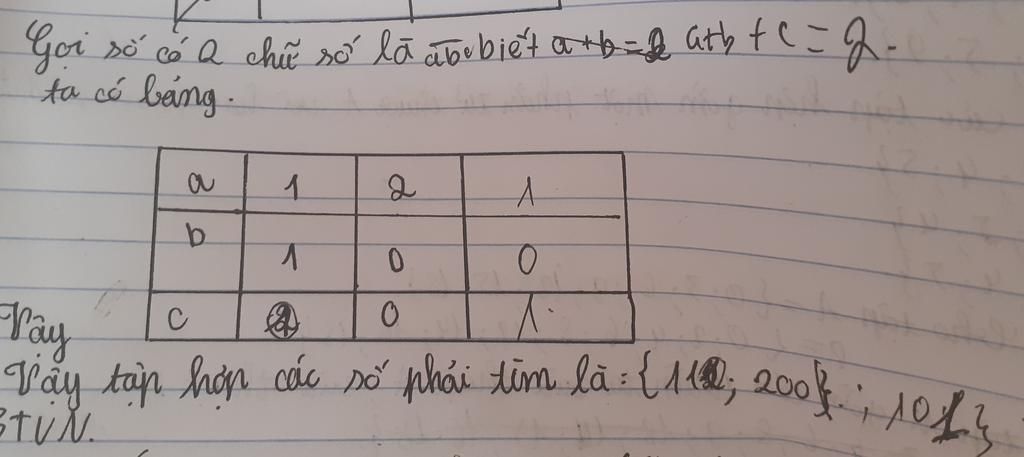 Gọi số có 2 chữ số là abc biết a+b=2 a+b+c=2.
ta có bảng.
a 1 2 1
b 1 0 0
c 0 1
Vậy
Vậy tập hợp các số phải tìm là: { 11 ; 200}. ; 101}
BTVN.